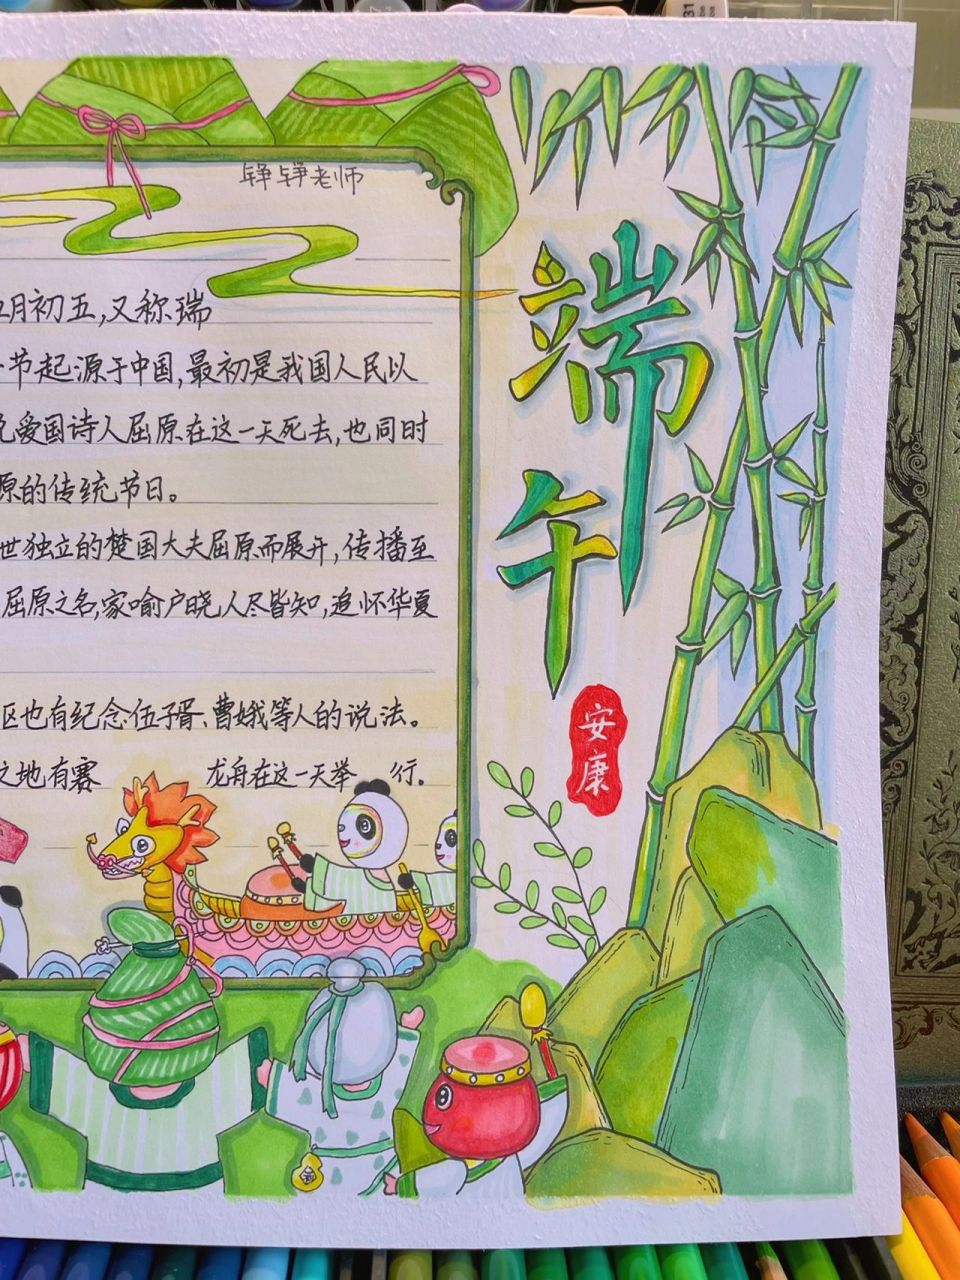 铮铮老师
月初五,又称瑞
节起源于中国,最初是我国人民以
爱国诗人屈原在这一天死去,也同时
原的传统节日。
世独立的楚国大夫屈原而展开,传播至
屈原之名,家喻户晓人尽皆知,追怀华夏
区也有纪念伍子胥、曹娥等人的说法。
之地,有赛 龙舟在这一天举 行.
端午
安康